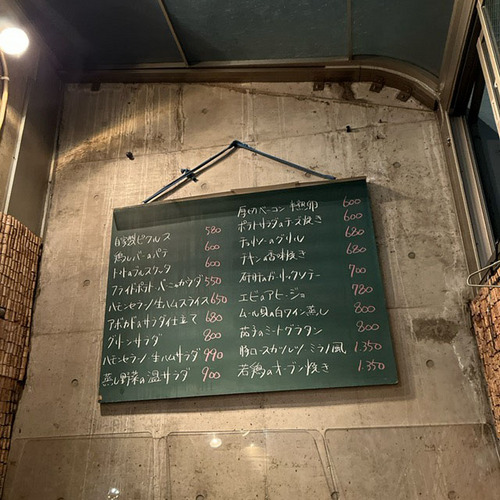 自家製ピクルス 580
鶏レバーのパテ 600
トマトのブルスケッタ 600
フライドポテト 550
ハモンセラーノ 生ハムスライス 650
アボカドのサラダ仕立て 680
グリーンサラダ 800
ハモンセラーノ 生ハムサラダ 990
蒸し野菜の温サラダ 900
厚切ベーコン 半熟卵 600
ポテトサラダのチーズ焼き 600
チョリソーのグリル 680
チキンの香味焼き 680
砂肝のガーリックソテー 700
エビのアヒージョ 780
ムール貝の白ワイン蒸し 800
茄子のミートグラタン 800
豚ロースカツレツ ミラノ風 1.350
若鶏のオーブン焼き 1.350